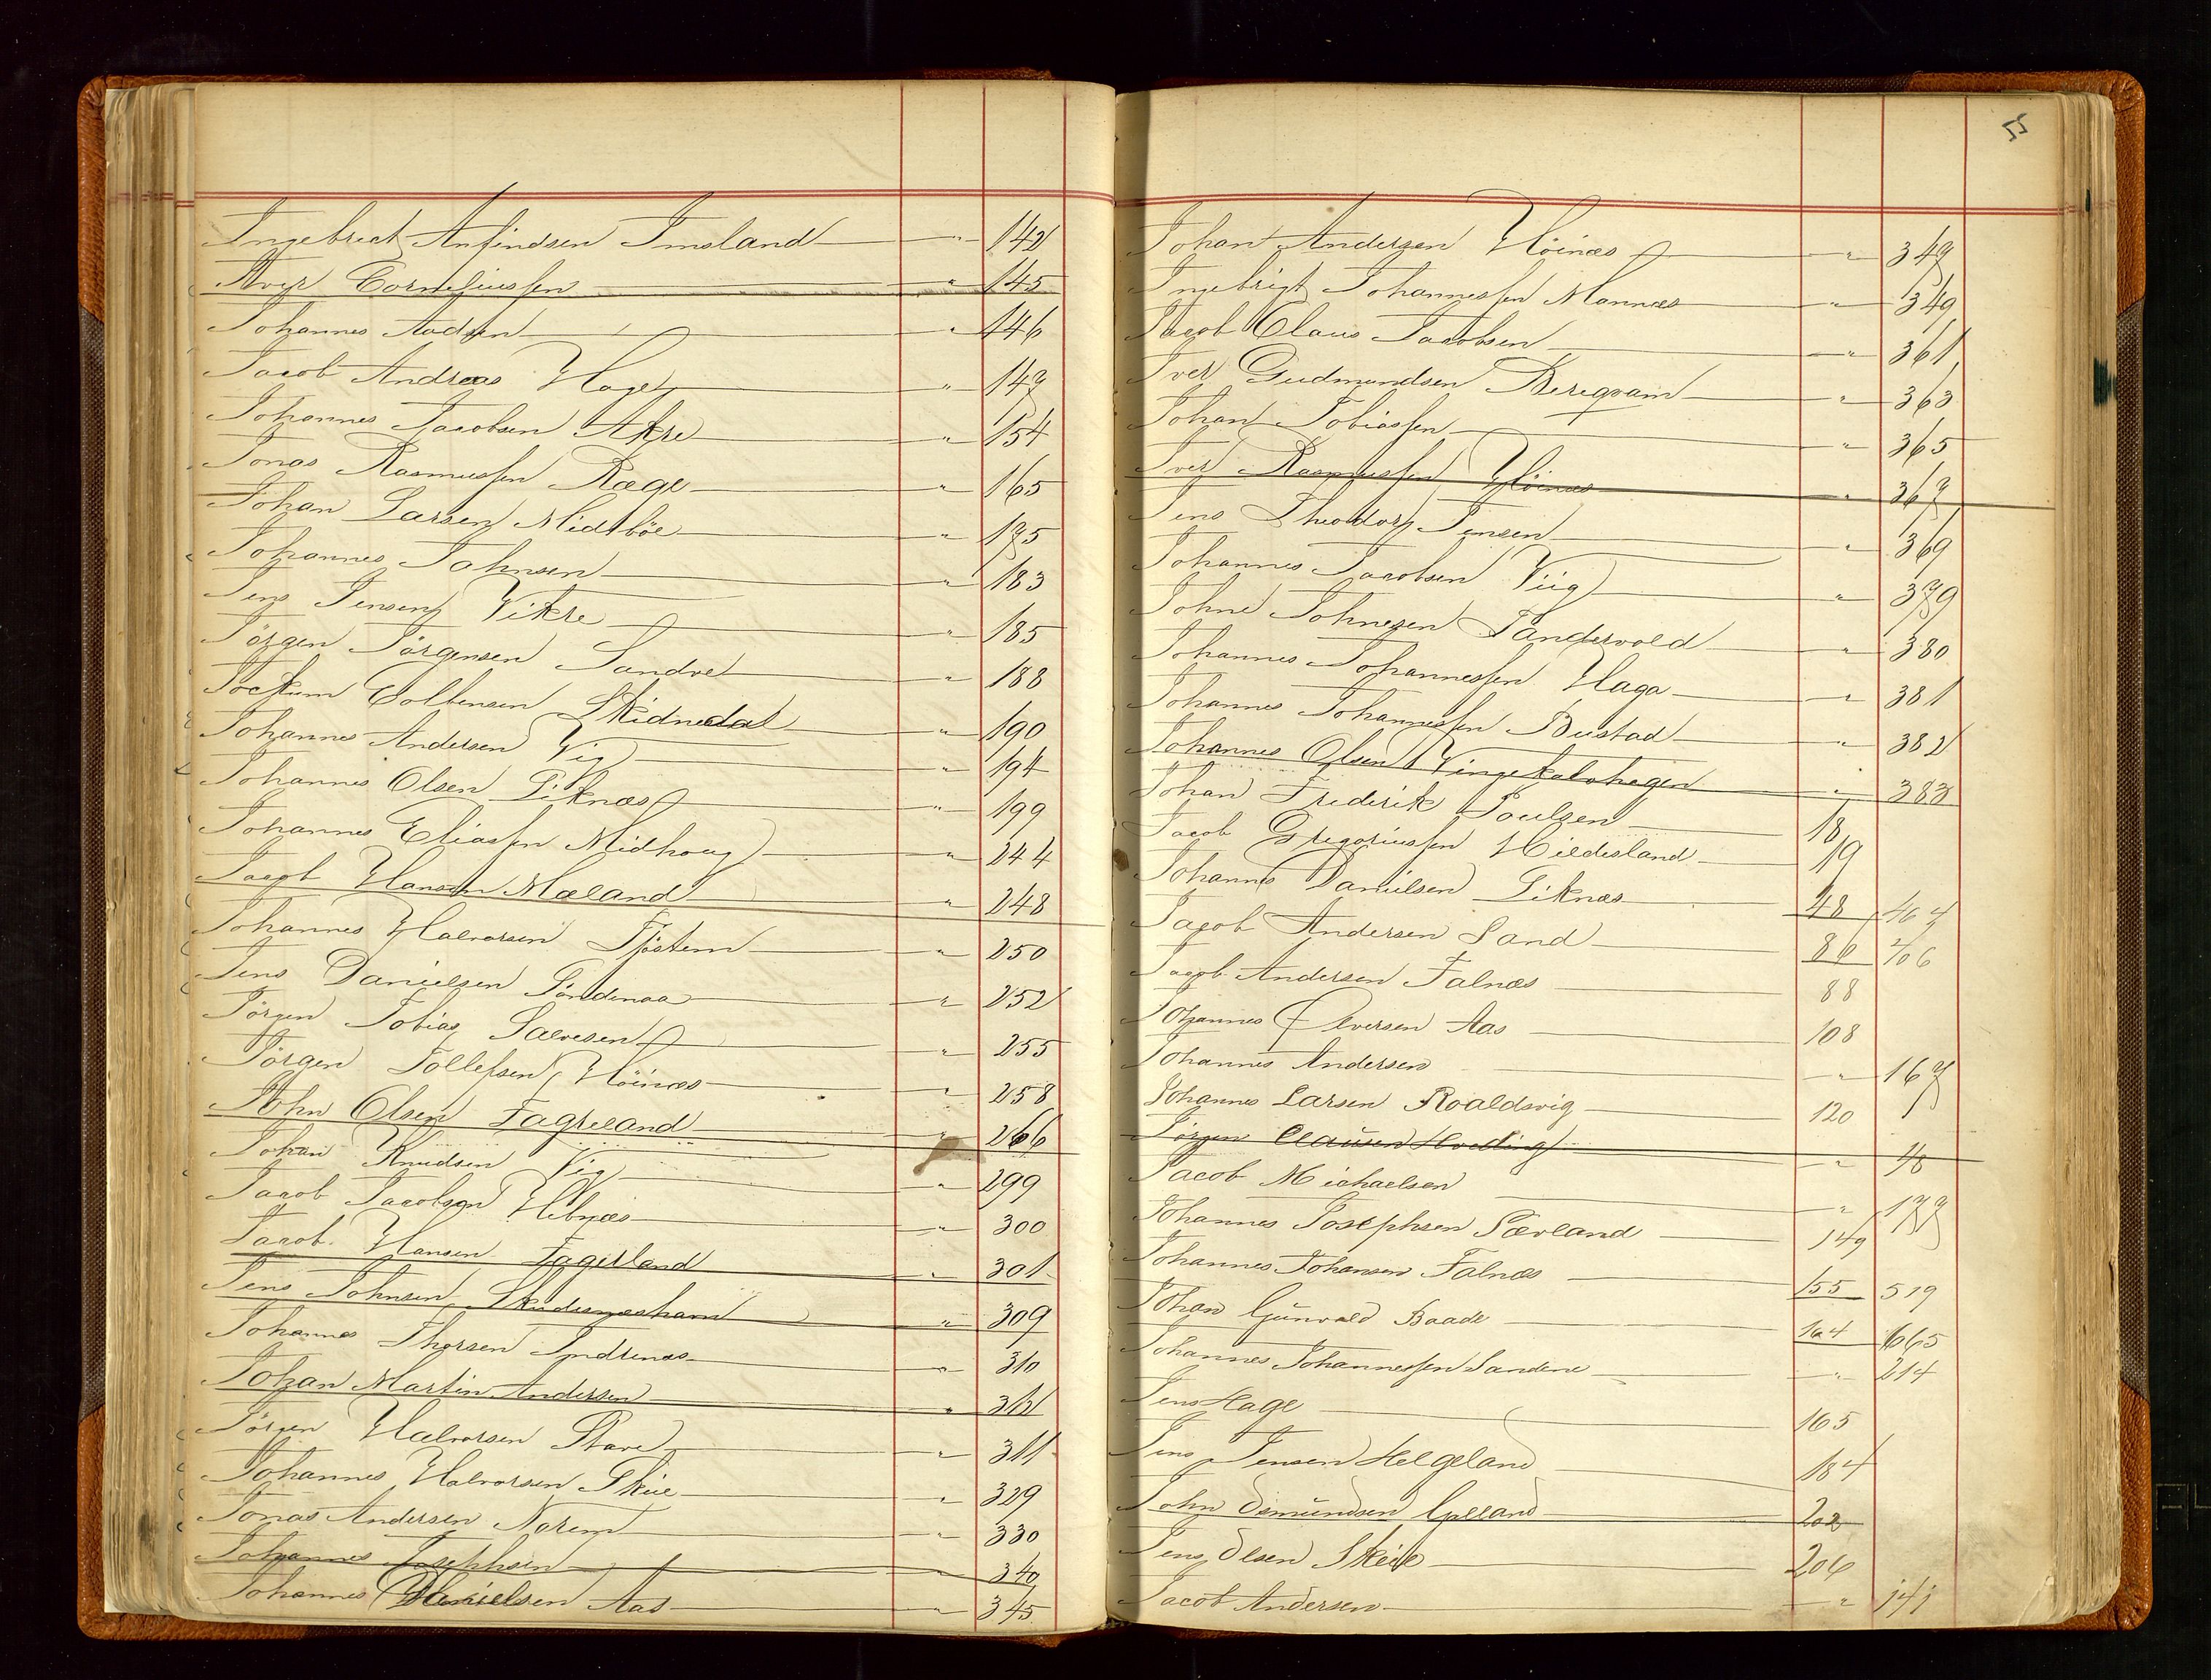 Ingebret Anfindsen Imsland — " 142
Iver Corneliussen — " 145
Johannes Aadsen — " 146
Jacob Andreas Hage — " 147
Johannes Jacobsen Akre — " 154
Jonas Rasmussen Rœge — " 165
Johan Larsen Midtböe — " 175
Johannes Johnsen — " 183
Jens Jensen Vikre — " 185
Jörgen Jörgensen Sandve — " 188
Jockum Colbensen Skidnedal — " 190
Johannes Andersen Vig — " 194
Johannes Olsen Liknæs — " 199
Johannes Eliassen Midhoug — " 244
Jacob Hansen Mæland — " 248
Johannes Halvorsen Tjöstem — " 250
Jens Danielsen Söndenaa — " 252
Jörgen Tobias Salvesen — " 255
Jörgen Tollefsen Höinæs — " 258
John Olsen Fagreland — " 266
Johan Knudsen Vig — " 299
Jacob Jacobsen Hebnæs — " 300
Jacob Hansen Fagerland — " 301
Jens Johnsen Skudesnæshavn — " 309
Johannes Thorsen Indrenæs — " 310
Johan Martin Andersen — " 312
Jörgen Halvorsen Stave — " 311
Johannes Halvorsen Skeie — " 329
Jonas Andersen Norem — " 330
Johannes Josephsen — " 340
Johannes Danielsen Aas — " 345
55
Johan Andersen Höinæs — " 347
Ingebrigt Johannessen Mannæs — " 349
Jacob Claus Jacobsen — " 361
Iver Gudmundsen Berequam — " 363
Johan Tobiassen — " 365
Iver Rasmussen Höinæs — " 367
Jens Theodor Jensen — " 369
Johannes Jacobsen Viig — " 379
Johne Johnesen Sandervold — " 380
Johannes Johannessen Haga — " 381
Johannes Johannessen Bustad — " 382
Johannes Olsen Vingekalvhagen — " 383
Johan Frederik Poulsen — 18
Jacob Gregoriussen Hildesland — 19
Johannes Danielsen Liknæs — 48 464
Jacob Andersen Sand — 86 206
Jacob Andersen Falnæs — 88
Johannes Iversen Aas — 108
Johannes Andersen — " 167
Johannes Larsen Roaldsvig — 120
Jörgen Clausen Hveding — " 48
Jacob Michaelsen — " 177
Johannes Josephsen Sævland — 149
Johannes Johansen Falnæs — 155 519
Johan Gunvald Baade — 164 665
Johannes Johannessen Sandene — " 214
Jens Hage — 165
Jens Jensen Helgeland — 184
John Osmundsen Gilland — 202
Jens Olsen Skeie — 206
Jacob Andersen — " 141